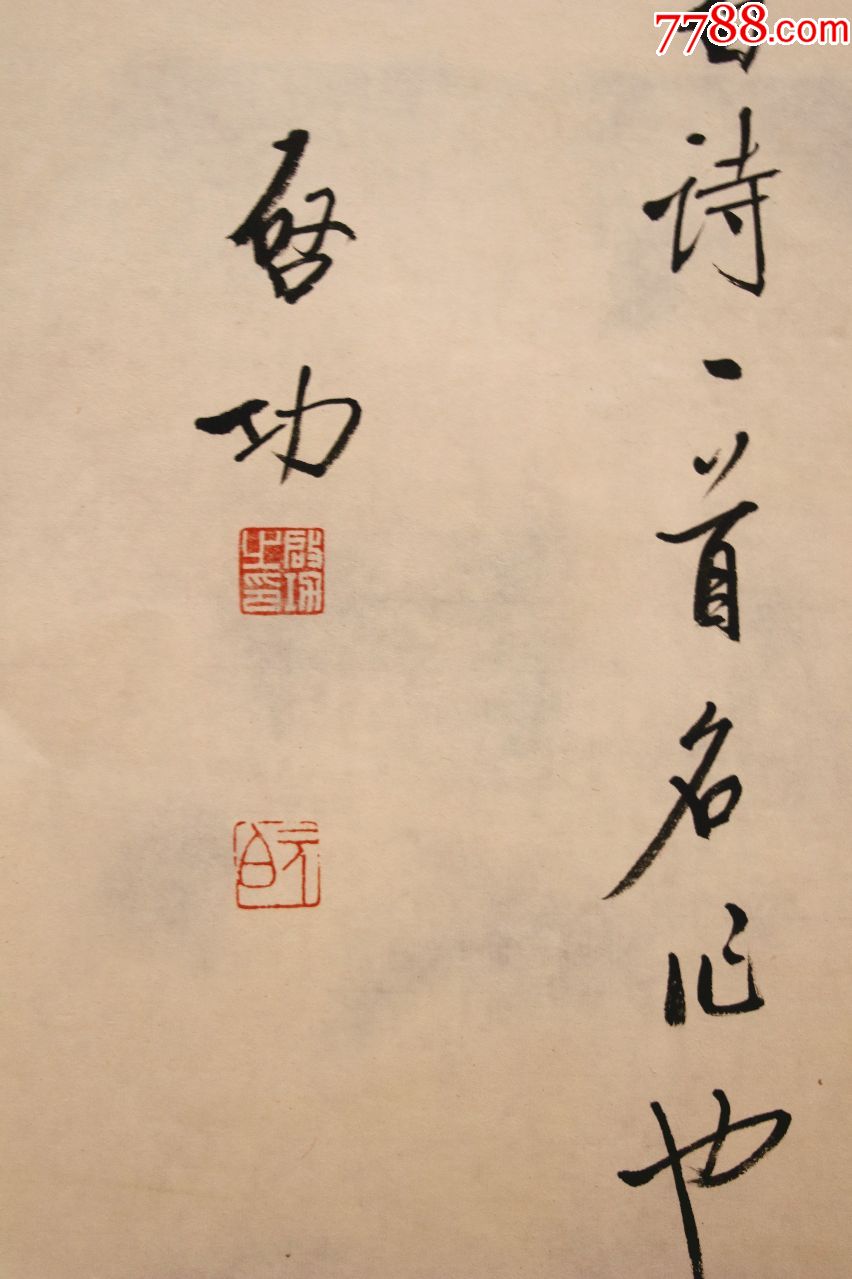 7788.com
诗一首名作也
啓功
啟功之印
元白